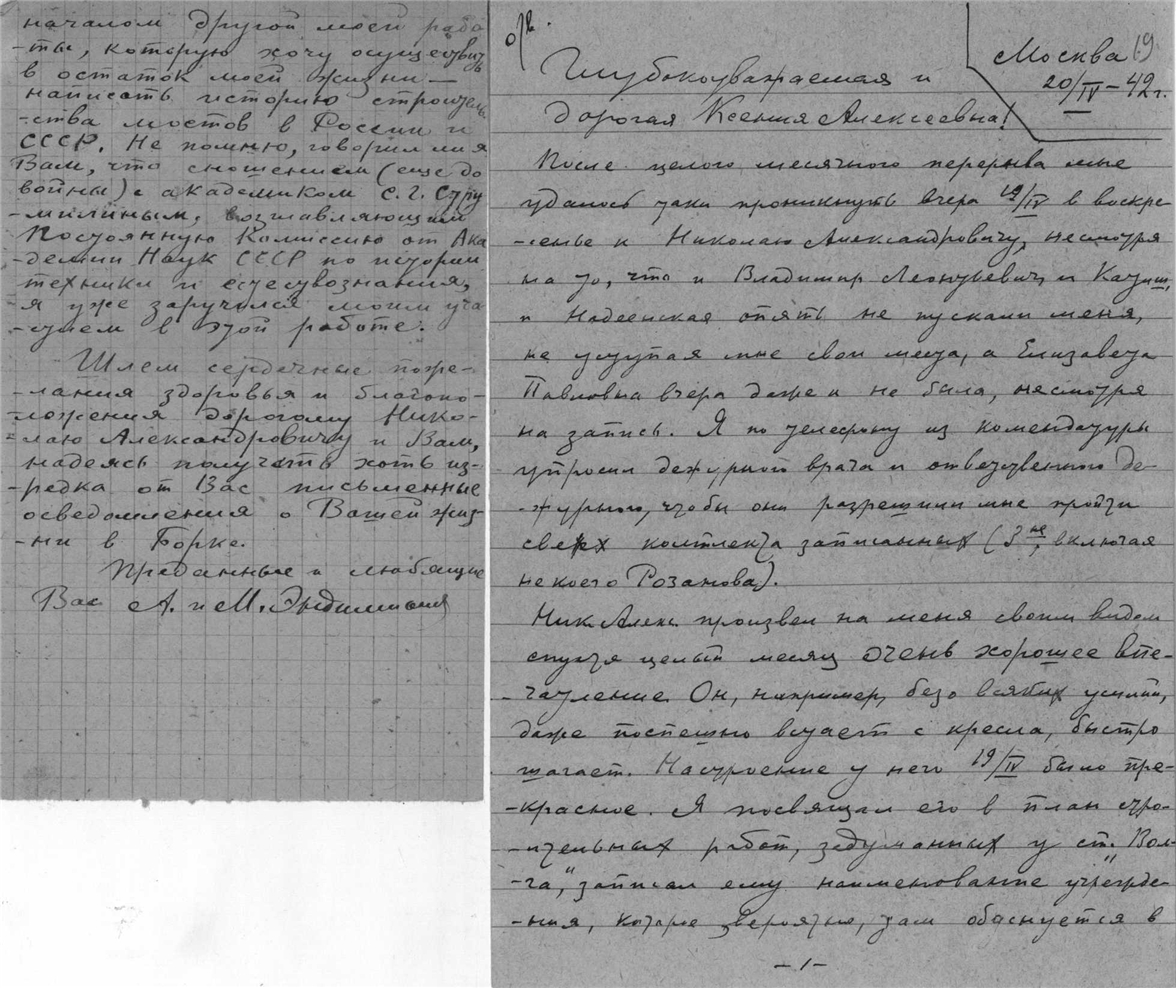 началом другой моей рабо
-ты, которую хочу осуществить
в остаток моей жизни —
написать историю строитель
-ства мостов в России и
СССР. Не помню, говорил ли я
Вам, что сношением (еще до
войны) с академиком С. Г. Стру
-милиным, возглавляющим
Постоянную Комиссию от Ака
-демии Наук СССР по истории
техники и естествознания,
-я уже заручился моим уча
-стием в этой работе.
Шлем сердечные поже-
-лания здоровья и благопо-
-ложения дорогому Нико-
=лаю Александровичу и Вам,
надеясь получать хоть из-
-редка от Вас письменные
осведомления о Вашей жиз-
-ни в Борке.
Преданные и любящие
Вас А. и М.
Отв.
Москва 19
20/IV–42 г.
Глубокоуважаемая и
дорогая Ксения Алексеевна!
После целого месячного перерыва мне
удалось таки проникнуть вчера 19/IV в воскре-
-сенье к Николаю Александровичу, несмотря
на то, что и Владимир Леонтьевич и
и опять не пускали меня,
не уступая мне свои места, а Елизавета
Павловна вчера даже и не была, несмотря
на запись. Я по телефону из комендатуры
упросил дежурного врача и ответственного де-
-журного, чтобы они разрешили мне пройти
сверх комплекта записанных (3-, включая
некоего Розанова).
Ник. Алекс. произвел на меня своим видом
спустя целый месяц очень хорошее впе-
-чатление. Он, например, безо всяких усилий,
даже поспешно встает с кресла, быстро
шагает. Настроение у него 19/IV было пре-
-красное. Я посвящал его в план стро-
-ительных работ, задуманных у ст. „Вол-
-га", записал ему наименование учрежде-
-ния, которое, вероятно, там обоснуется в
– 1 –